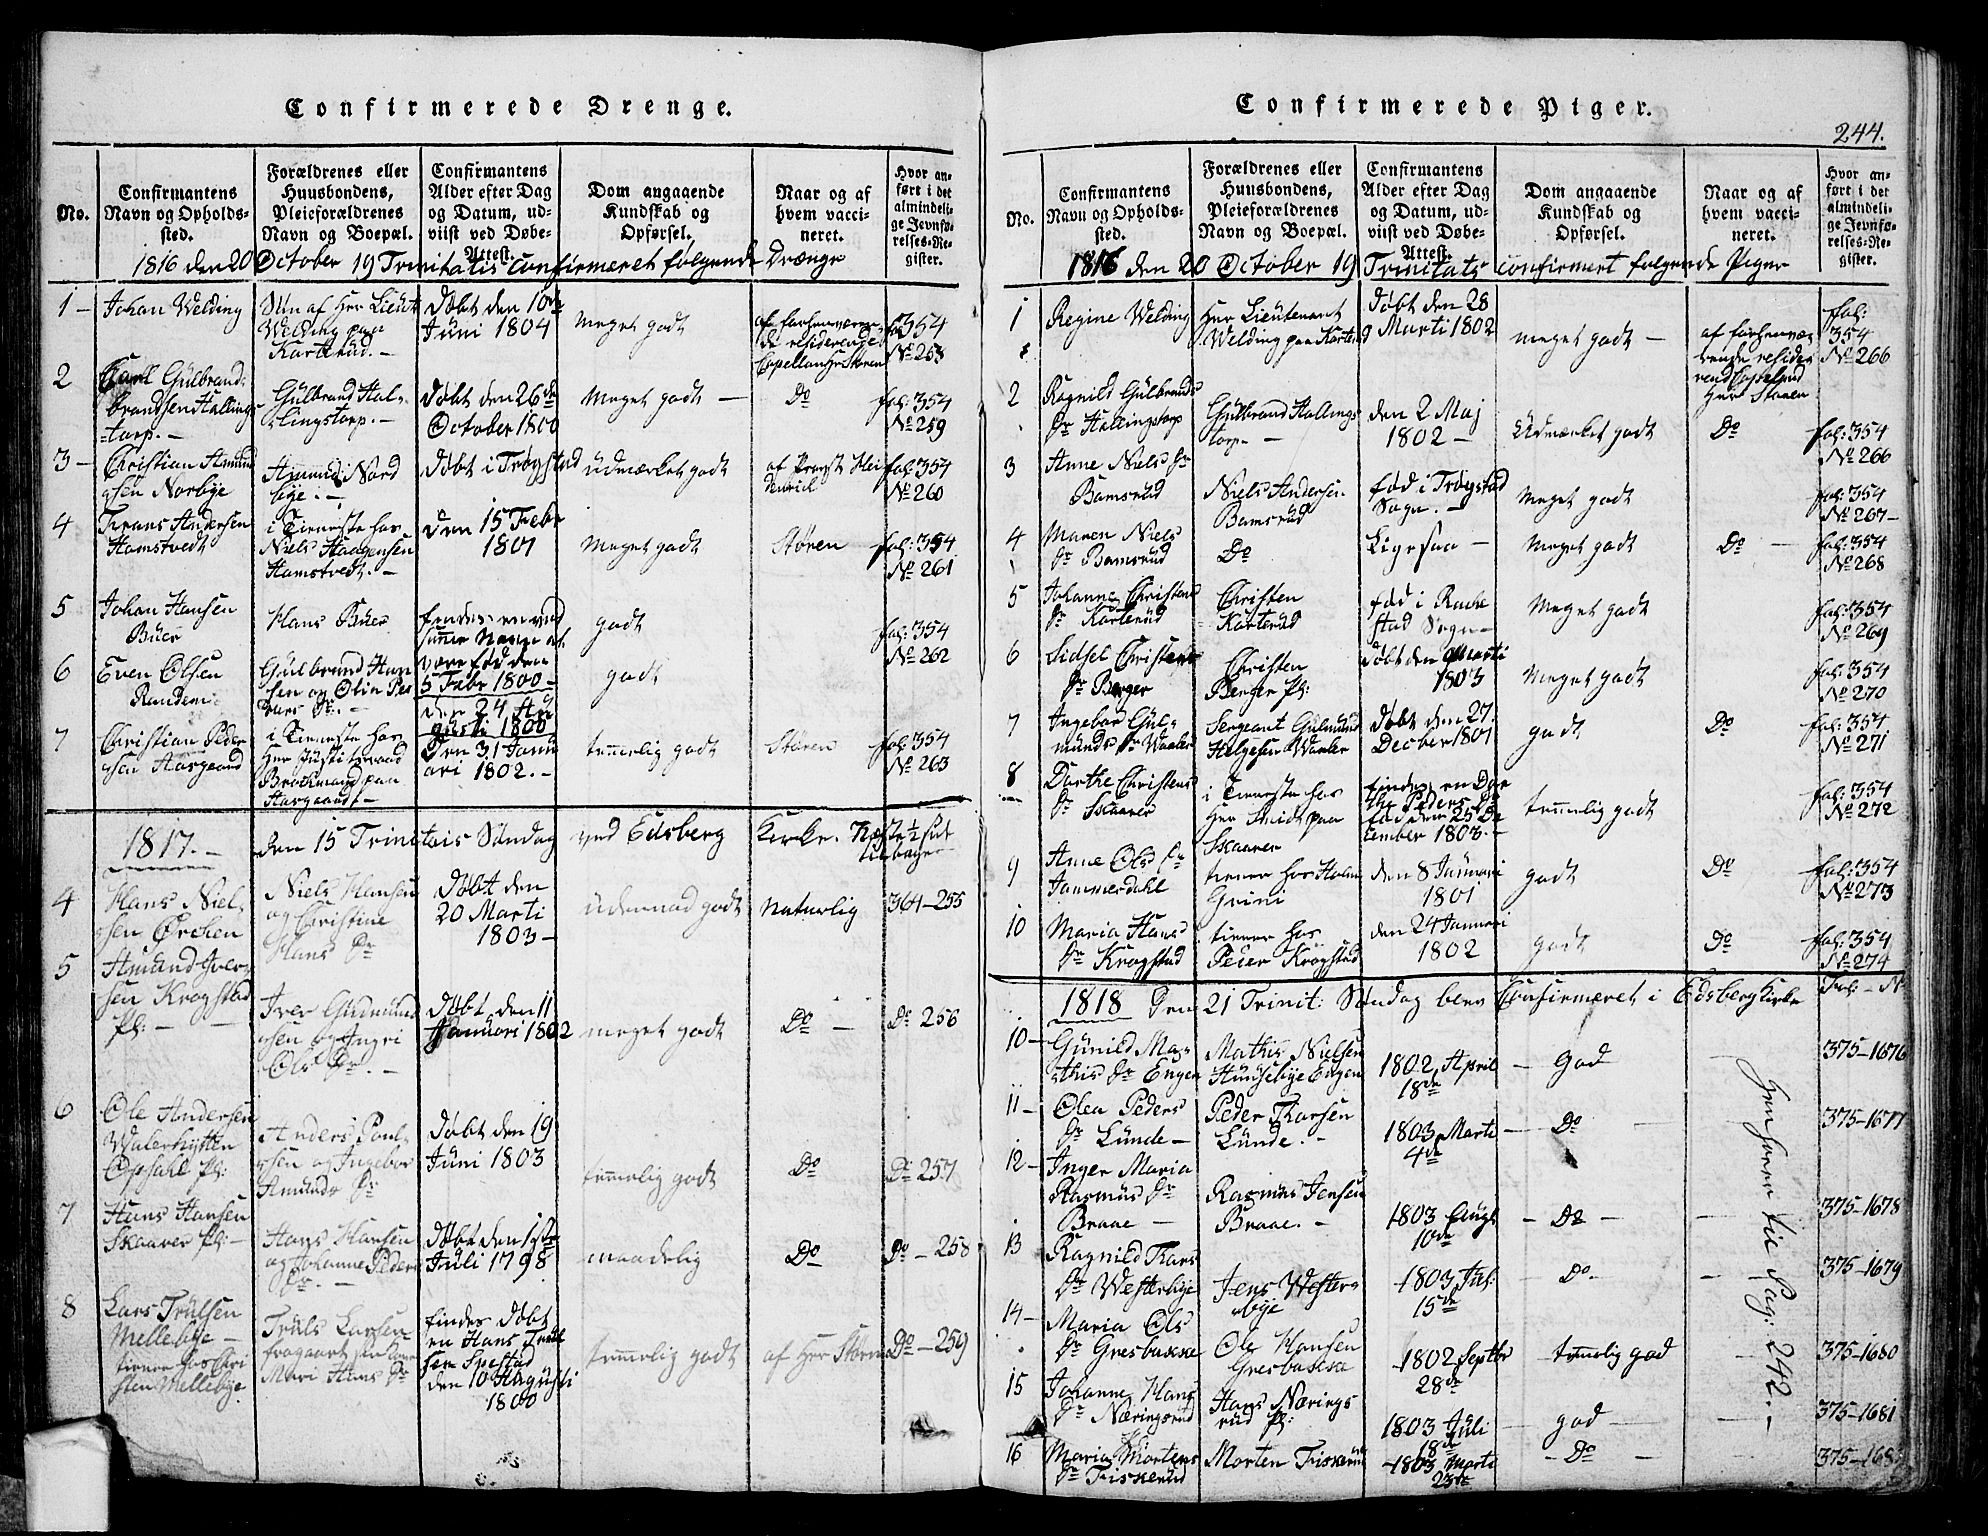 Confirmerede Drenge.
No.
Confirmantens Navn og Opholds-sted.
Forældrenes eller Huusbondens, Pleieforældrenes Navn og Boepæl.
Confirmantens Alder efter Dag og Datum, ud-viist ved Døbe-Attest.
Dom angaaende Kundskab og Opførsel.
Naar og af hvem vacci-neret.
Hvor an-ført i det almindeli-ge Jevnfø-relses-Re-gister.
1816 den 20 October 19 Trinitatis confirmeret følgende Drænge
1 - Johan Welding
Søn af Her Lieut Welding paa Karterud. -
Døbt den 10de Juni 1804
Meget godt
Capellan Hr Støren
fol 354 No 253
2 Carll Gulbrand=brandsen Hallings=torp. -
Gulbrand Hal=lingstorp. -
Døbt den 26de October 1800
Meget godt -
Do
fol: 354 No 259
3 - Christian Amund gsen Norbye
Amund Nord bye. -
Døbt i Trøgstad
Udmærket godt
af Provst Hei denrich
fol: 354 No 260
4 Frans Andersen Hamstvedt
i Tieneste hos Niels Haagensen Hamstvedt. -
den 15 Febr 1801
Meget godt
Støren
fol: 354 No 261
5 Johan Hansen Büer
Hans Büer
godt
fol: 354 No 262
6 Even Olsen Ramdem
være fød den 5 Febr 1800 -
den 24 Au gusti 1800
godt
7 Christian Peder sen Aasgaard
i Tieneste hos Her Justitsraad Brochmand paa Aasgaard. -
Den 31 Janu ari 1802. -
temmerlig godt
Støren
fol: 354 No 263
1817. - den 15 Trinitais Søndag ved Edsberg Kirke. Næste 1/2 sid tilbage
4 Hans Niel=sen Ørchen
Niels Hansen og Christine Hans Dr
Døbt den 20 Marti 1803 -
udernad godt
Naturlig
364-255
5 Amund Iver=sen Krogstad Pl: -
Iver Gudmund sen og Ingri Ols Dr. -
Døbt den 11 Januari 1802
meget godt
Do -
Do 256
6 Ole Andersen Walerhytten Opsahl pl:
Anders Poul=sen og Ingebor Amunds Dr
Døbt den 19 Juni 1803
temmelig godt
Do
Do 257
7 Hans Hansen Skaarer Pl: -
Hans Hansen og Johanne Peders Dr. -
Døbt den 1ste Juli 1798
maadelig
Do
Do - 258
8 Lars Trulsen Mellebye - tiener hos Chri sten Mellebye.
Truls Larsen Mari Hans Dr
findes døbt en Hans Truls sen Spestad den 10 Augusti 1800
temmerlig godt
af Her Støren
Do - 259
Confirmerede Piger.
244.
No.
Confirmantens Navn og Opholds-sted.
Forældrenes eller Huusbondens, Pleieforældrenes Navn og Boepæl.
Confirmantens Alder efter Dag og Datum, ud-viist ved Døbe-Attest.
Dom angaaende Kundskab og Opførsel.
Naar og af hvem vacci-neret.
Hvor an-ført i det almindeli-ge Jevnfø-relses-Re-gister.
1816 den 20 October 19 Trinitats confirmert følgende Piger
1 Regine Welding
Her Lieutenant Welding paa Karterud
Døbt den 28 Marti 1802
meget godt -
af forhenvæ rende reside rend Capelland Herr Støren
fol: 354 No 266
2 Ragnild Gulbrands Dr Hallingstorp
Gulbrand Hallings torp - -
den 2 Maj 1802 -
Udmærket godt
Do
fol: 354 No 266
3 Anne Niels Dr Bamsrud
Niels Andersen Bamsrud
fød i Trøgstad Sogn. -
Meget godt
fol: 354 No 267 -
4 Maren Niels Dr Bamsrud
Do
Ligesaa -
Meget godt
Do -
fol: 354 No 268
5 Johanne Christens Dr Karterud
Christen Karterud
fød i Racke stad Sogn -
Meget godt
fol: 354 No 269
6 Sidsel Christens Dr Berger
Christen Berger Pl:
Døbt den Marti 1803
Meget godt
fol: 354 No 270
7 Ingebor Gul=munds Dr Waaler
Sergeant Gulmund Helgesen Waaler
Døbt den 27. Decber 1801
godt
Do
fol: 354 No 271
8 Dorthe Christens Dr Skaarer
i Tieneste hos Her Smidt paa Skaaren
findes en Dor the Peders Dr fød den 25 De cember 1803. -
temmelig godt
fol: 354 No 272
9 Anne Ols Dr Jammerdahl
tiener hos Holm Grini
den 8 Januari 1801
godt
Do
fol: 354 No 273
10 Maria Hans Dr Krogstad
tiener hos Peder Krogstad
den 24 Januari 1802
godt
Do
fol: 354 No 274
1818 Den 21 Trinit: Søndag blev Confirmeret i Edsberg Kirke
Fol - No
10 - Gunild Ma=this Dr Engen
Mathis Nielsen Huusebye Engen
1802, April 18de
- God
375-1676
11 - Olea Peders Dr Lunde -
Peder Thorsen Lunde. -
1803 Marti 4de
- Do -
375-1677
12 - Inger Maria Rasmus Dr Braae -
Rasmus Jensen Braae. -
1803 Augt 10de
- Do -
375-1678
13 Ragnild Thors Dr Westerbye
Jens Wester=bye
1803 Jul: 15de
- Do -
375-1679
14 - Maria Ols Dr Gresbakke
Ole Hansen Gresbakke
1802 Septbr 28de
- temmelig god
375-1680
15 Johanne Hans Dr Næringsrud
Hans Nærings rud Pl:
1803 Juli 18de
- god -
375-1681
16 Maria Mortens Dr Friskerud
Morten Friskerud
1803 Marti 23de
- Do -
375-168
Henhører til Pag: 242. -